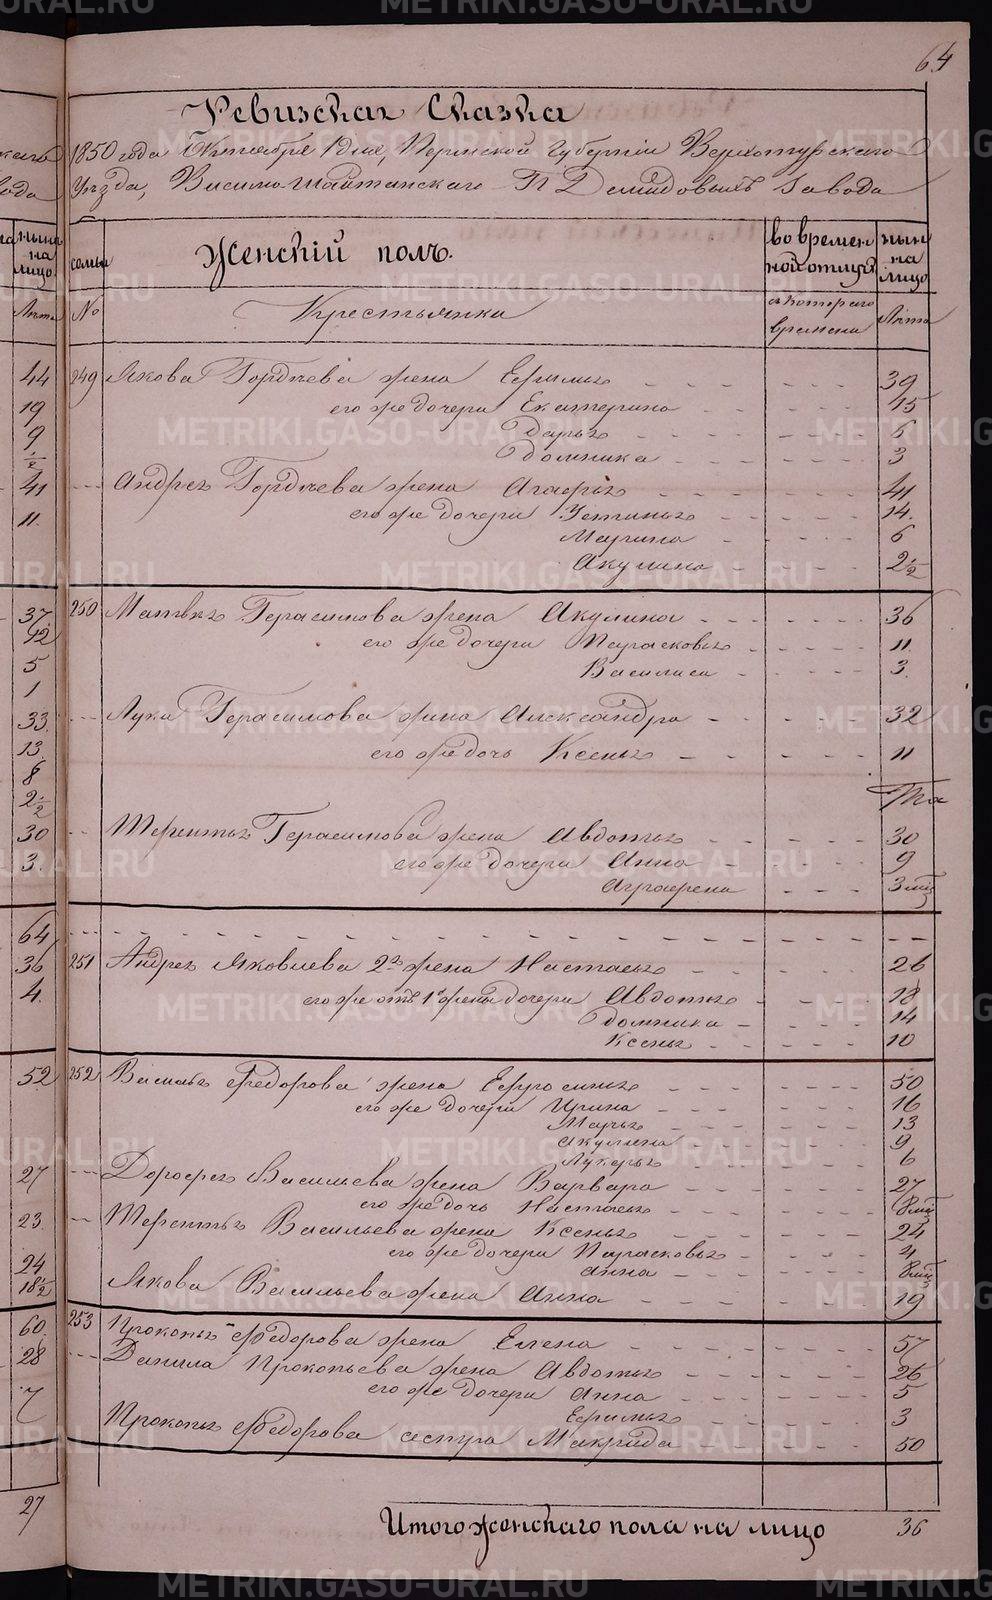 64
Ревизская Сказка
1850 года Октября 1 дня, Пермской Губернии Верхотурскаго
Уезда, Висимо-Шайтанскаго П Демидовыхъ завода
семьи
Женскій полъ.
во времен
ной отлучке
ныне
на
лицо
№
Крестьянка
съ котораго
времени
Лета
249 Якова Гордеева жена Ефимья 39
его же дочери Екатерина 15
Дарья 6
Домника 3
Андрея Гордеева жена Агафья 41
его же дочери Устинья 14.
Марина 6
Акулина 2½
250 Матвея Герасимова жена Акулина 36
его же дочери Парасковья 11.
Василиса 3.
Луки Герасимова жена Александра 32
его же дочь Ксенья 11
Терентья Герасимова жена Авдотья 30
его же дочери Анна 9
Аграфена 3 мц
251 Андрея Яковлева 2я жена Настасья 26
его же отъ 1й жены дочери Авдотья 18
Домника 14
Ксенья 10
252 Василья Федорова жена Ефросинья 50
его же дочери Ирина 16
Марья 13
Акулина 9
Лукерья 6
Дорофея Васильева жена Варвара 27
его же дочь Настасья 8 мц
Терентья Васильева жена Ксенья 24
его же дочери Парасковья 4
Анна 8 мц
Якова Васильева жена Анна 19
253 Прокопья Федорова жена Елена 57
Данила Прокопьева жена Авдотья 26
его же дочери Анна 5
Ефимья 3
Прокопья Федорова сестра Макрида 50
Итого женскаго пола на лицо 36
44
19
9
½
41
11.
37.
12
5
1
33.
13.
8
2½
30
3.
64
36
4.
52
27
23.
24
18½
60.
28
7
27
METRIKI.GASO-URAL.RU